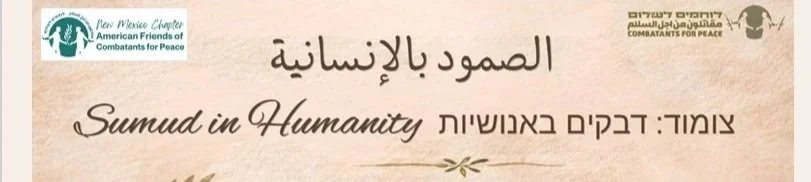 New Mexico Chapter
American Friends of
Combatants for Peace
לוחמים לשלום
مقاتلون من أجل السلام
COMBATANTS FOR PEACE
الصمود بالإنسانية
Sumud in Humanity צומוד: דבקים באנושיות